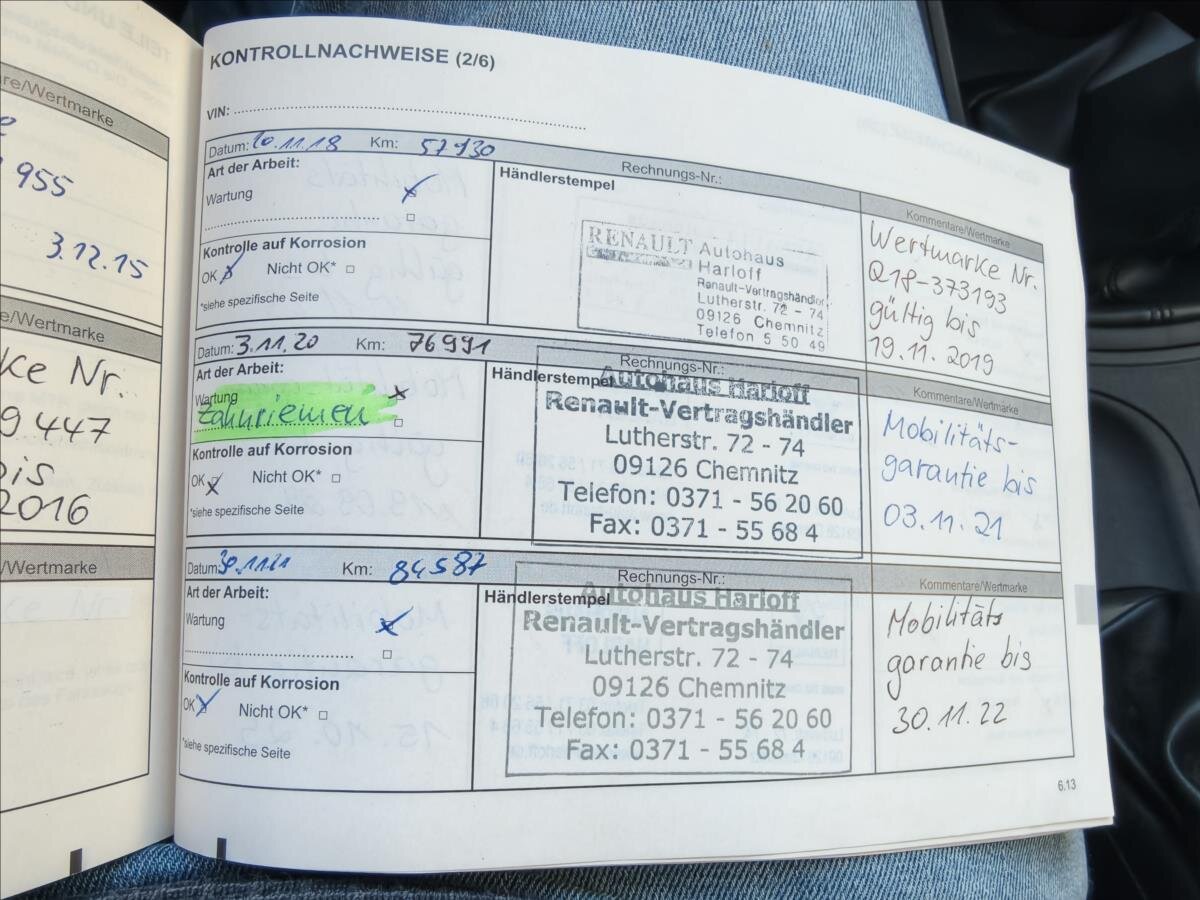 re/Wertmarke
955
3.12.15
e/Wertmarke
ke Nr.
9 447
bis
2016
/Wertmarke
KONTROLLNACHWEISE (2/6)
VIN:
Datum: 20.11.18 Km: 57930
Rechnungs-Nr.:
Kommentare/Wertmarke
Art der Arbeit:
Wartung
Kontrolle auf Korrosion
OK Nicht OK*
*siehe spezifische Seite
Händlerstempel
RENAULT Autohaus
Harloff
Renault-Vertragshändler
Lutherstr. 72 - 74
09126 Chemnitz
Telefon 5 50 49
Wertmarke Nr.
Q18-373193
gültig bis
19.11.2019
Datum: 3.11.20 Km: 76991
Rechnungs-Nr.:
Kommentare/Wertmarke
Art der Arbeit:
Wartung
Zahnriemen
Kontrolle auf Korrosion
OK Nicht OK*
*siehe spezifische Seite
Händlerstempel
Autohaus Harloff
Renault-Vertragshändler
Lutherstr. 72 - 74
09126 Chemnitz
Telefon: 0371 - 56 20 60
Fax: 0371 - 55 68 4
Mobilitäts-
garantie bis
03.11.21
Datum: 30.11.21 Km: 84587
Rechnungs-Nr.:
Kommentare/Wertmarke
Art der Arbeit:
Wartung
Kontrolle auf Korrosion
OK Nicht OK*
*siehe spezifische Seite
Händlerstempel
Autohaus Harloff
Renault-Vertragshändler
Lutherstr. 72 - 74
09126 Chemnitz
Telefon: 0371 - 56 20 60
Fax: 0371 - 55 68 4
Mobilitäts
garantie bis
30.11.22
6.13